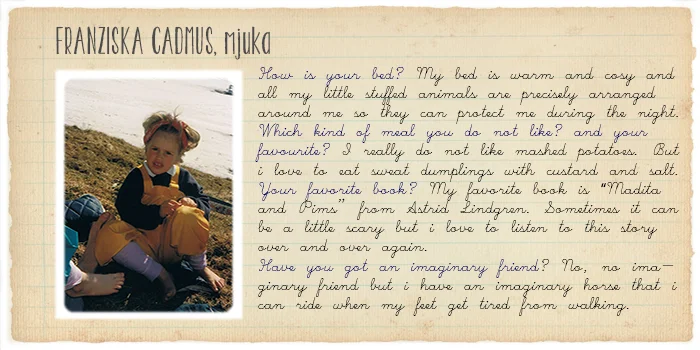 FRANZISKA CADMUS, mjuka
How is your bed? My bed is warm and cosy and
all my little stuffed animals are precisely arranged
around me so they can protect me during the night.
Which kind of meal you do not like? and your
favourite? I really do not like mashed potatoes. But
i love to eat sweat dumplings with custard and salt.
Your favorite book? My favorite book is "Madita
and Pims" from Astrid Lindgren. Sometimes it can
be a little scary but i love to listen to this story
over and over again.
Have you got an imaginary friend? No, no ima-
ginary friend but i have an imaginary horse that i
can ride when my feet get tired from walking.